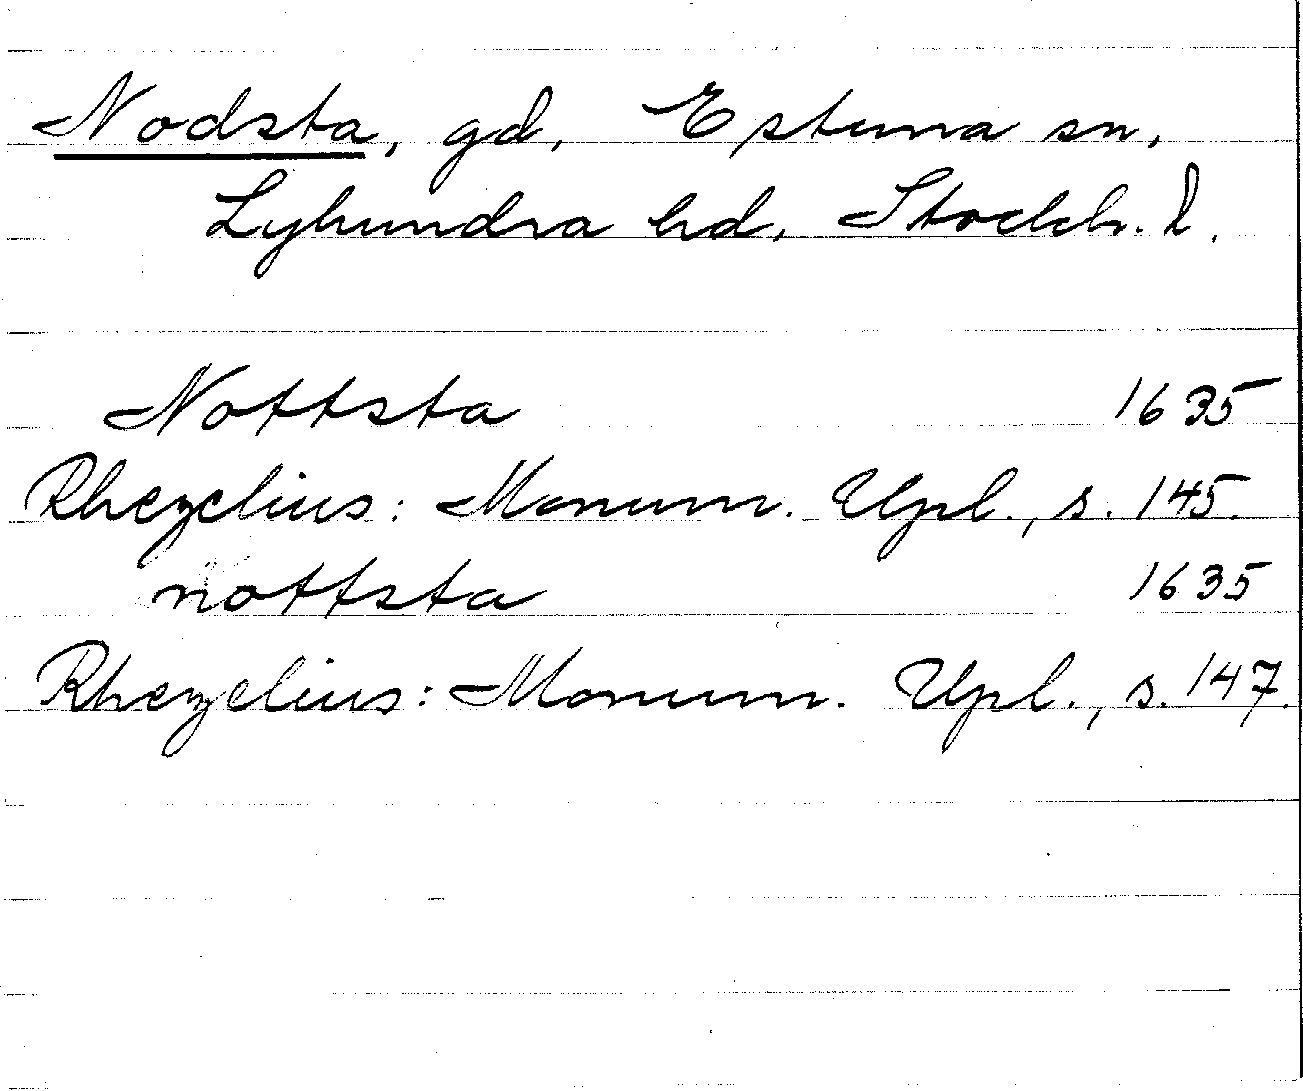 Nodsta, gd, Estuna sn,
Lyhundra hd, Stockh. l.
Nottsta 1635
Rhezelius: Monum. Upl., s. 145.
nottsta 1635
Rhezelius: Monum. Upl., s. 147.